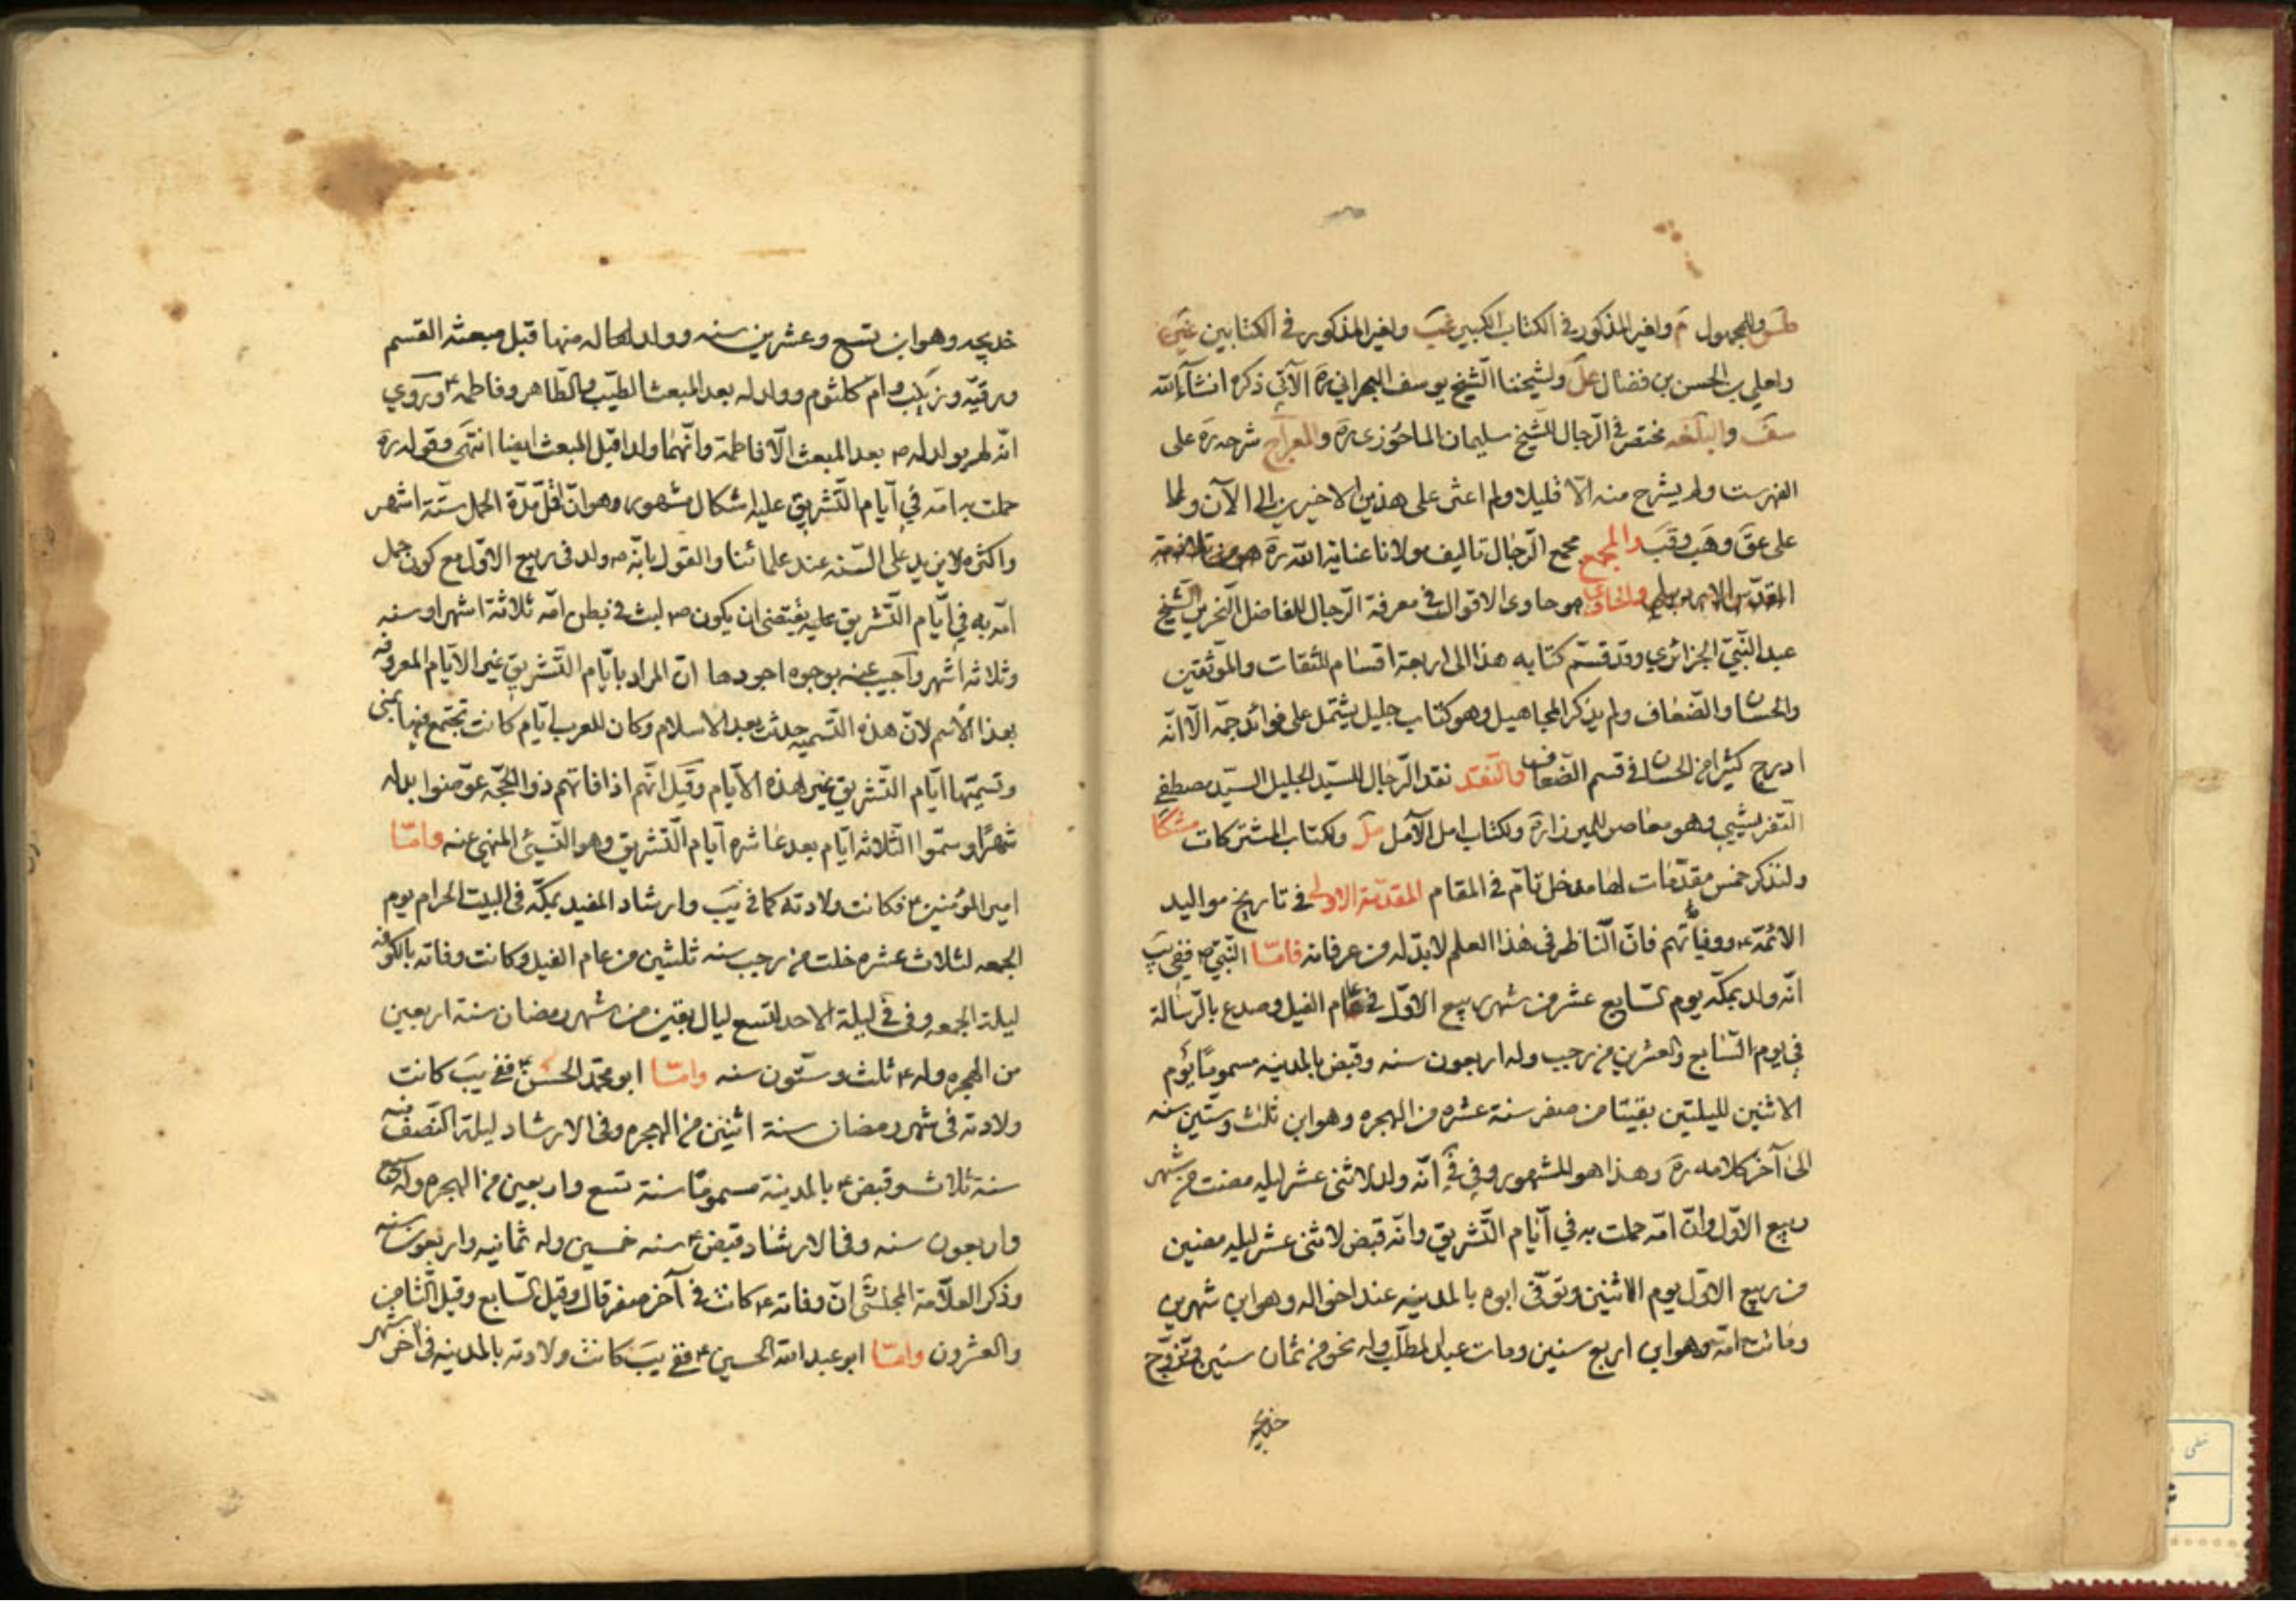 طس وللمجهول م ولغير المذكور في الكتاب الكبير غب ولغير المذكور في الكتابين غين
ولعلي بن الحسن بن فضال عل ولشيخنا الشيخ يوسف البحراني ره الآتي ذكره انشآء الله
سف والبلغه مختصر في الرجال للشيخ سليمان الماحوزي ره والمعراج شرحه ره على
الفهرست ولم يشرح منه الّا قليلا ولم اعثر على هذين الاخيرين الى الآن ولما
على عق وهب وقب د المجمع مجمع الرجال تاليف مولانا عناية الله ره هو من تلامذة
المقدس والحاوي هو حاوى الاقوال في معرفة الرجال للفاضل النحرير الشيخ
عبد النبي الجزائري وقد قسّم كتابه هذا الى اربعة اقسام للثقات والموثقين
والحسان والضعاف ولم يذكر المجاهيل وهو كتاب جليل يشتمل على فوائد جمّه الّا انّه
ادرج كثيرا من الحسان في قسم الضعاف والنقد نقد الرجال للسيّد الجليل السيّد مصطفى
التفريشيي وهو معاصر للميرزا ره ولكتاب امل الآمل مل ولكتاب المشتركات مشكا
ولنذكر خمس مقدّمات لها مدخل تامّ في المقام المقدّمة الاولى في تاريخ مواليد
الائمّة ع ووفياتهم فانّ النّاظر في هذا العلم لا بدّ له من عرفانه فامّا النّبيّ ص ففي يب
انّه ولد بمكّه يوم السّابع عشر من شهر ربيع الاوّل في عام الفيل وصدع بالرّسالة
في يوم السّابع والعشرين من رجب وله اربعون سنه وقبض بالمدينه مسموما يوم
الاثنين لليلتين بقيتا من صفر سنة عشره من الهجره وهو ابن ثلث وستّين سنه
الى آخر كلامه ره وهذا هو المشهور وفي في انّه ولد لاثنى عشر ليله مضت من شهر
ربيع الاوّل وانّ امّه حملت به في آيّام التّشريق وانّه قبض لاثنى عشر ليله مضين
من ربيع الاوّل يوم الاثنين وتوفّى ابوه بالمدينه عند اخواله وهو ابن شهرين
وماتت امّه وهو ابن اربع سنين ومات عبد المطلب وله نحو من ثمان سنين وتزوّج
خديجه
خديجه وهو ابن بضع وعشرين سنه وولد له منها قبل مبعثه القسم
ورقيّه وزينب وام كلثوم وولد له بعد المبعث الطيّب والطّاهر وفاطمه ع وروي
انّه لم يولد له ص بعد المبعث الّا فاطمة وانّهما ولدا قبل المبعث ايضا انتهى وقوله ره
حملت به امّه في آيام التّشريق عليه اشكال مشهور وهو انّ اقلّ مدّة الحمل ستّة اشهر
واكثره لا يزيد على السّنه عند علمائنا والقول بانّه ص ولد في ربيع الاوّل مع كون حمل
امّه به في ايّام التّشريق عليه يقتضى ان يكون ص لبث في بطن امّه ثلاثة اشهر او سنه
وثلاثه اشهر واجيب عنه بوجوه اجودها انّ المراد بايّام التّشريق غير الايّام المعروفه
بهذا الاسم لانّ هذه التّسميه حدثت بعد الاسلام وكان للعرب ايّام كانت تجتمع فيها بمنى
وتسمّيها ايّام التّشريق غير هذه الايّام وقيل انّهم اذا فاتهم ذو الحجّه عوّضوا بدله
شهرًا وسمّوا الثلاثه ايّام بعد عاشره آيام التّشريق وهو النّسيئ المنهي عنه وامّا
امير المؤمنين ع فكانت ولادته كما في يب وارشاد المفيد بمكّه في البيت الحرام يوم
الجمعه لثلاث عشره خلت من رجب سنه ثلثين من عام الفيل وكانت وفاته بالكوفه
ليلة الجمعه وفي في ليلة الاحد لتسع ليال بقين من شهر رمضان سنة اربعين
من الهجره وله ع ثلث وستّون سنه وامّا ابو محمّد الحسن ع ففي يب كانت
ولادته في شهر رمضان سنة اثنين من الهجره وفي الارشاد ليلة النّصف منه
سنة ثلاث وقبض ع بالمدينة مسموما سنة تسع واربعين من الهجره وله سبع
واربعون سنه وفي الارشاد قبض ع سنه خمسين وله ثمانيه واربعون سنه
وذكر العلّامة المجلسيّ انّ وفاته ع كانت في آخر صفر قال وقيل السّابع وقيل الثّامن
والعشرون وامّا ابو عبد الله الحسين ع ففي يب كانت ولادته بالمدينه في آخر شهر